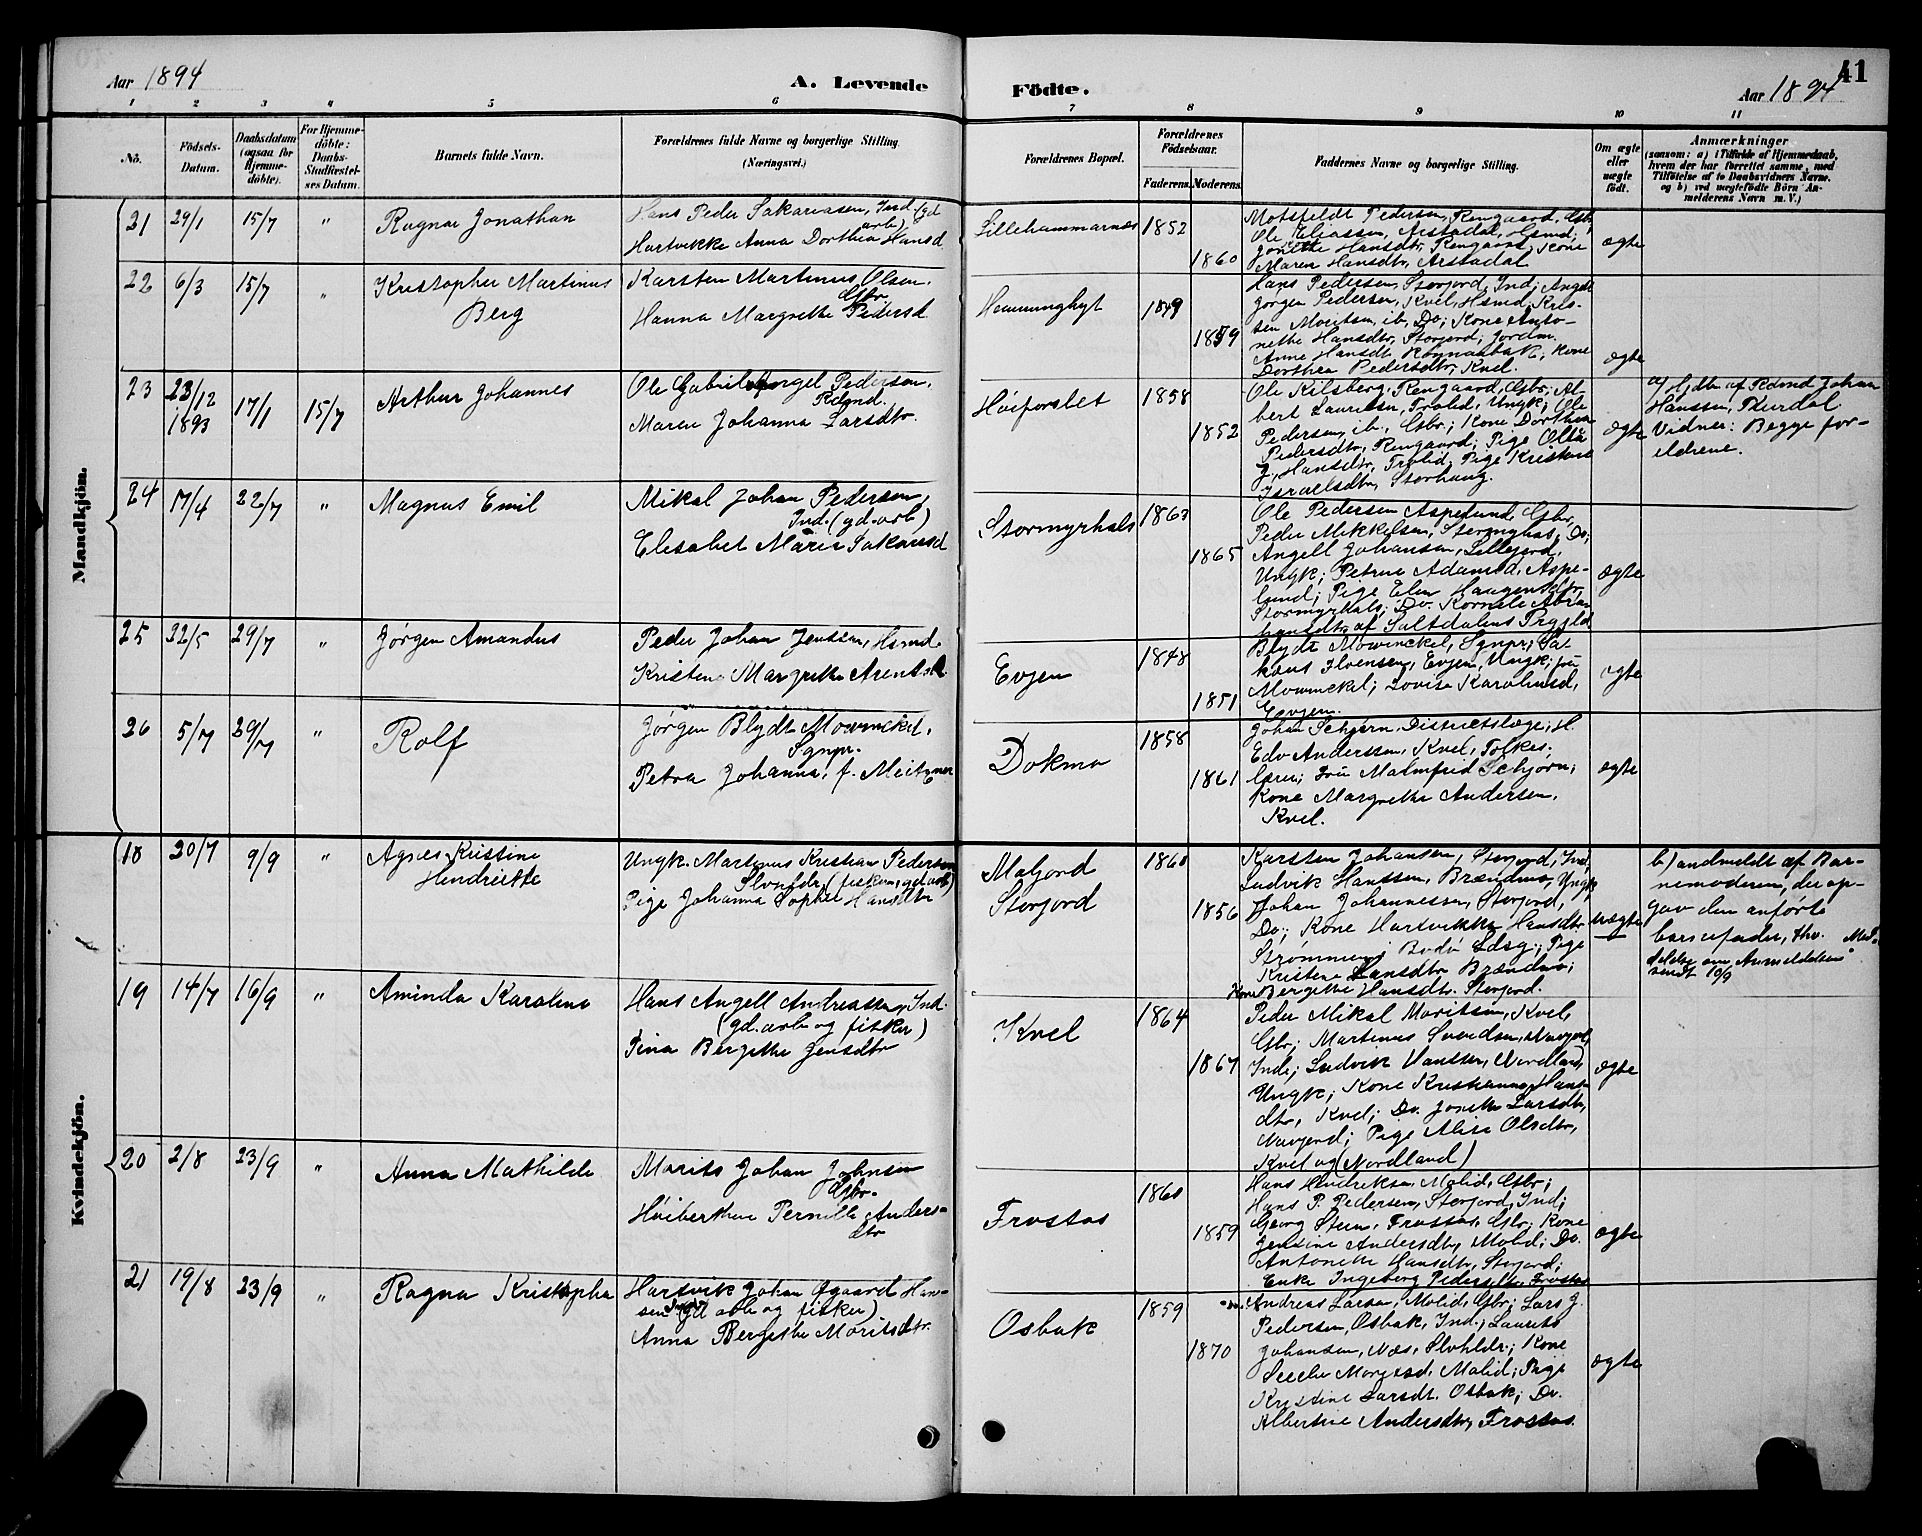 Aar 1894
A. Levende
Födte.
Aar 1894
41
1 2 3 4 5 6 7 8 9 10 11
No.
Födsels-
Datum.
Daabsdatum
(ogsaa for
Hjemme-
döbte).
For Hjemme-
döbte:
Daabs-
Stadfæstel-
ses Datum.
Barnets fulde Navn.
Forældrenes fulde Navne og borgerlige Stilling
(Næringsvei.)
Forældrenes Bopæl.
Forældrenes
Födselsaar.
Faderens. Moderens.
Faddernes Navne og borgerlige Stilling.
Om ægte
eller
uægte
födt.
Anmærkninger
(saasom: a) i Tilfælde af Hjemmedaab,
hvem der har forrettet samme, med
Tilföielse af to Daabsvidners Navne.
og b) ved uægtefödte Börn An-
melderens Navn m. V.)
Mandkjön.
21 29/1 15/7 " Ragnar Jonathan
Hans Peder Sakariasen, Ind. (gd
arb)
Hartvikke Anna Dorthea Hansd
Lillehammarnes 1852
1860
Motsfeldt Pedersen, Rengaard, Gbr,
Ole Eliassen, Arstadal, Hsmd;
Jonette Hansdtr, Rengaard, Kone
Maren Hansdtr, Arstadal
ægte
22 6/3 15/7 " Kristopher Martinus
Berg
Karsten Martinus Olsen,
Gbr.
Hanna Margrethe Pedersd
Hemminghyt 1849
1859
Hans Pedersen, Storjord, Ind; Angel
Jörgen Pedersen, Kvel, Hsmd, Kris-
ten Moritsen, ib, Do; Kone Anto-
nethe Hansdtr, Storjord; Jordm.
Anne Hansdt, Kone
Dorthea Pedersdtr, Kvel.
ægte
23 23/12
1893 17/1 15/7 Arthur Johannes
Ole Gabriel Angel Pedersen,
Rdmd.
Maren Johanna Larsdtr.
Höiforslet 1858
1852
Ole Kilsberg, Rengaard, Gbr; Al-
bert Lauritsen, Trolid, Ungk; Ole
Pedersen, ib, Gbr; Kone Dorthea
Pedersdtr, Rengaard; Pige Olta
J. Hansdtr, Trolid, Pige Kristine
Israelsdtr, Storhaug.
ægte
a) Hjdbt af Rdmd Johan
Hanssen,
Vidner: Begge for-
eldrene.
24 17/4 22/7 " Magnus Emil
Mikal Johan Pedersen,
Ind. (gd. arb)
Elisabet Maria Sakariasd
Stormyrhals 1863
1865
Ole Pedersen Aspelund, Gbr,
Peder Mikkelsen, Stormyrhals, Do;
Angell Johansen, Lillejord,
Ungk; Petrine Adamsd, Aspe-
lund; Pige Elen
Stormyrhals; Do. Kornele Abra-
hamsdtr, af Saltdalens Prgjld
ægte
25 22/5 29/7 " Jörgen Amandus
Peder Johan Jenssen, Hsmd
Kristene Margrethe Arentsd.
Evjen 1848
1851
Blydt Mowinckel, Sgnpr; Sa-
karias Evjen, Ungk; fru
Mowinckel; Lovise Karolinsd,
Evjen.
ægte
26 5/7 29/7 " Rolf
Jörgen Blydt Mowinckel,
Sgnpr.
Petra Johanna, f. Meitzner
Dokmo 1858
1861
Johan Schjörn, Districtslæge; H.
Edv Anderssen, Kvel, Folkes.
lærer; Fru Malmfrid Schjörn;
Kone Margrethe Andersen,
Kvel.
ægte
Kvindekjön.
18 20/7 9/9 " Agnes Kristine
Hendriette
Ungk. Martinus Kristian Pedersen
Slvhldr, (fisker, gd arb)
Pige Johanna Sophie Hansdtr
Maljord
Storjord
1860
1856
Karsten Johansen, Storjord, Ind,
Ludvik Hanssen, Brændmo, Ungk
Johan Johannessen, Storjord,
Do; Kone Hartvikke Hansdtr
Strömmen; Bodö Ldsg; Pige
Kristene Hansdtr Brændmo;
Kone Bergethe Hansdtr. Storjord.
uægte
b) anmeldt af Bar-
nemoderen, der op-
gav den anförte
barnefader, thv. Med-
delelse om Anmeldelsen
sendt 10/9
19 14/7 16/9 " Aminda Karoline
Hans Angell Andreassen, Ind.
(gd. arb og fisker)
Tina Bergethe Jensdtr
Kvel 1864
1867
Peder Mikal Moritsen, Kvel,
Gbr; Martinus
Ind; Ludvik Hanssen, (Nordland)
Ungk; Kone Kristianna Hans-
dtr, Kvel; Do. Jonette Larsdtr,
Pige Alise Olsdtr,
Kvel og (Nordland)
ægte
20 2/8 23/9 " Anna Mathilde
Morits Johan Johnsen
Gbr.
Höiberthine Pernille Anders-
dtr
Frostas 1860
1859
Hans Hendriksen, Molid, Gbr;
Hans P. Pedersen, Storjord, Ind;
Georg Steen, Frostas, Gbr; Kone
Jensine Andersdtr, Molid; Do.
Antonette Hansdtr, Storjord;
Enke Ingeborg Pedersdtr, Frostas
ægte
21 19/8 23/9 " Ragna Kristopha
Hartvik Johan Ögaard Han-
sen Ind (gd arb og fisker)
Anna Bergethe Moritsdtr.
Osbak 1859
1870
Andreas Larsen, Molid, Gbr; Lars J.
Pedersen, Osbak, Ind., Laurits
Johansen, Næs, Slvhldr; Kone
Molid; Pige
Kristine Larsdt. Osbak; Do.
Albertine Andersdtr, Frostas.
ægte